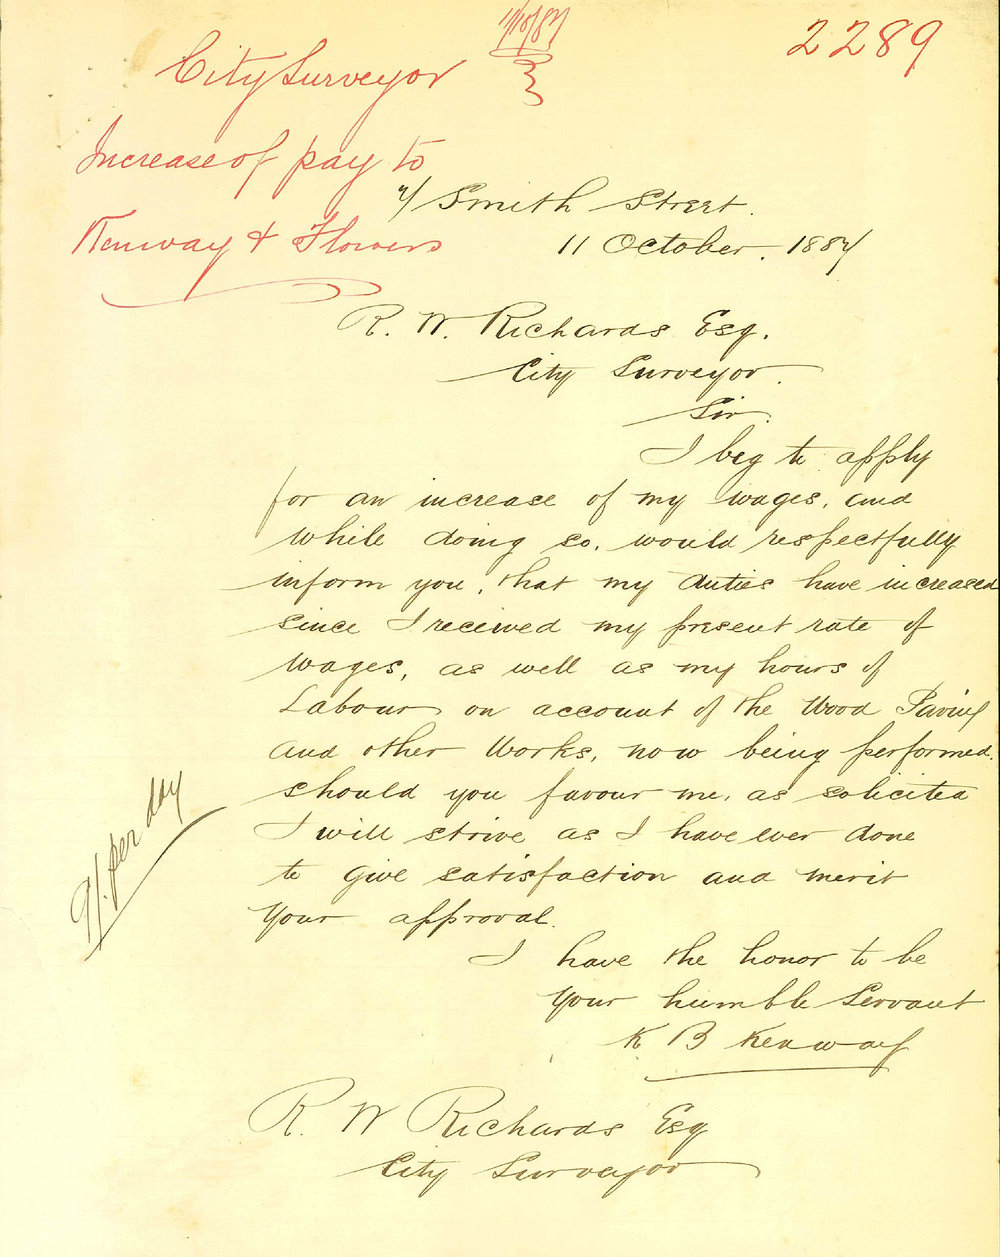 11/10/87
2289
City Surveyor
Increase of pay to
Kenway & Flowers
Smith Street.
11 October. 1887
R. W. Richards Esq.
City Surveyor.
Sir.
I beg to apply
for an increase of my wages, and
while doing so, would respectfully
inform you, that my duties have increased
since I received my present rate of
wages, as well as my hours of
Labour on account of the Wood Paving
and other Works, now being performed.
should you favour me, as solicited
I will strive as I have ever done
to give satisfaction and merit
Your approval.
9/. per day
I have the honor to be
Your humble Servant
K B Kenway
R. W Richards Esq
City Surveyor